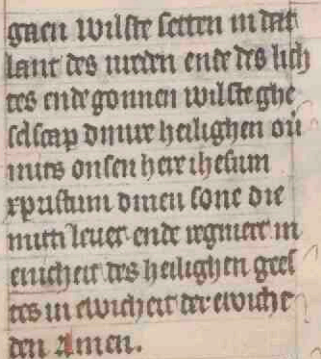 gaen wilste setten in dat
lant des vreden ende des lich
tes ende gonnen wilste ghe
selscap dinre heilighen ou
mits onsen here ihesum
xpustum dinen sone die
mitti leuet ende regniert in
enicheit des heilighen gees
tes in ewicheit der ewiche
den Amen.